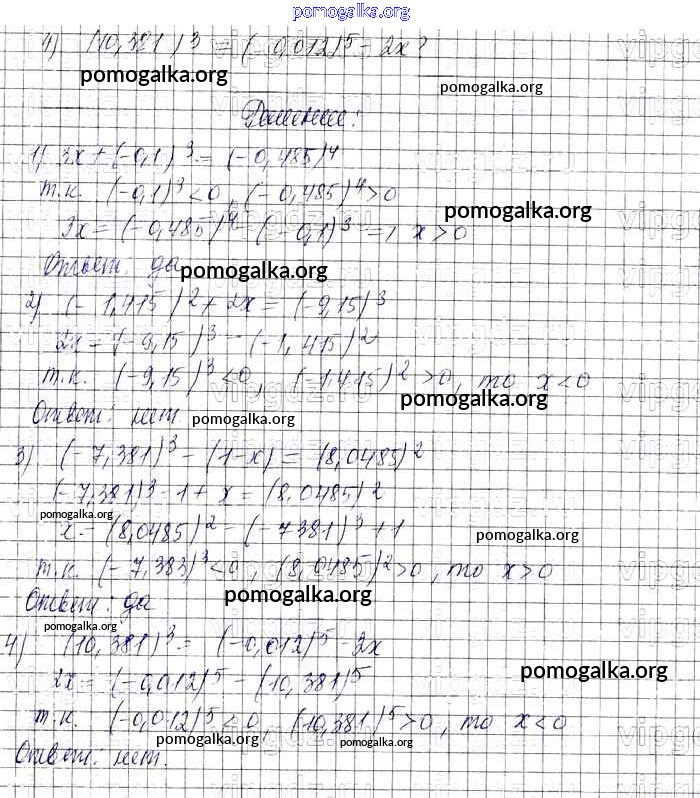 pomogalka.org
4) (10,381)³ = (-0,012)⁵ - 2x?
pomogalka.org pomogalka.org
Решение:
1) 3x + (-0,1)³ = (-0,485)⁴
т.к. (-0,1)³ < 0, (-0,485)⁴ > 0
pomogalka.org
3x = (-0,485)⁴ - (-0,1)³ => x > 0
Ответ: да
pomogalka.org
2) (-1,415)² + 2x = (-9,15)³
2x = (-9,15)³ - (-1,415)²
т.к. (-9,15)³ < 0, (-1,415)² > 0, то x < 0
pomogalka.org
Ответ: нет
pomogalka.org
3) (-7,381)³ - (1-x) = (8,0485)²
(-7,381)³ - 1 + x = (8,0485)²
pomogalka.org
x = (8,0485)² - (-7381)³ + 1
pomogalka.org
т.к. (-7,383)³ < 0, (8,0485)² > 0, то x > 0
Ответ: да
pomogalka.org
pomogalka.org
4) (10,381)³ = (-0,012)⁵ - 2x
pomogalka.org
2x = (-0,012)⁵ - (10,381)⁵
т.к. (-0,012)⁵ < 0, (10,381)⁵ > 0, то x < 0
pomogalka.org pomogalka.org
Ответ: нет.